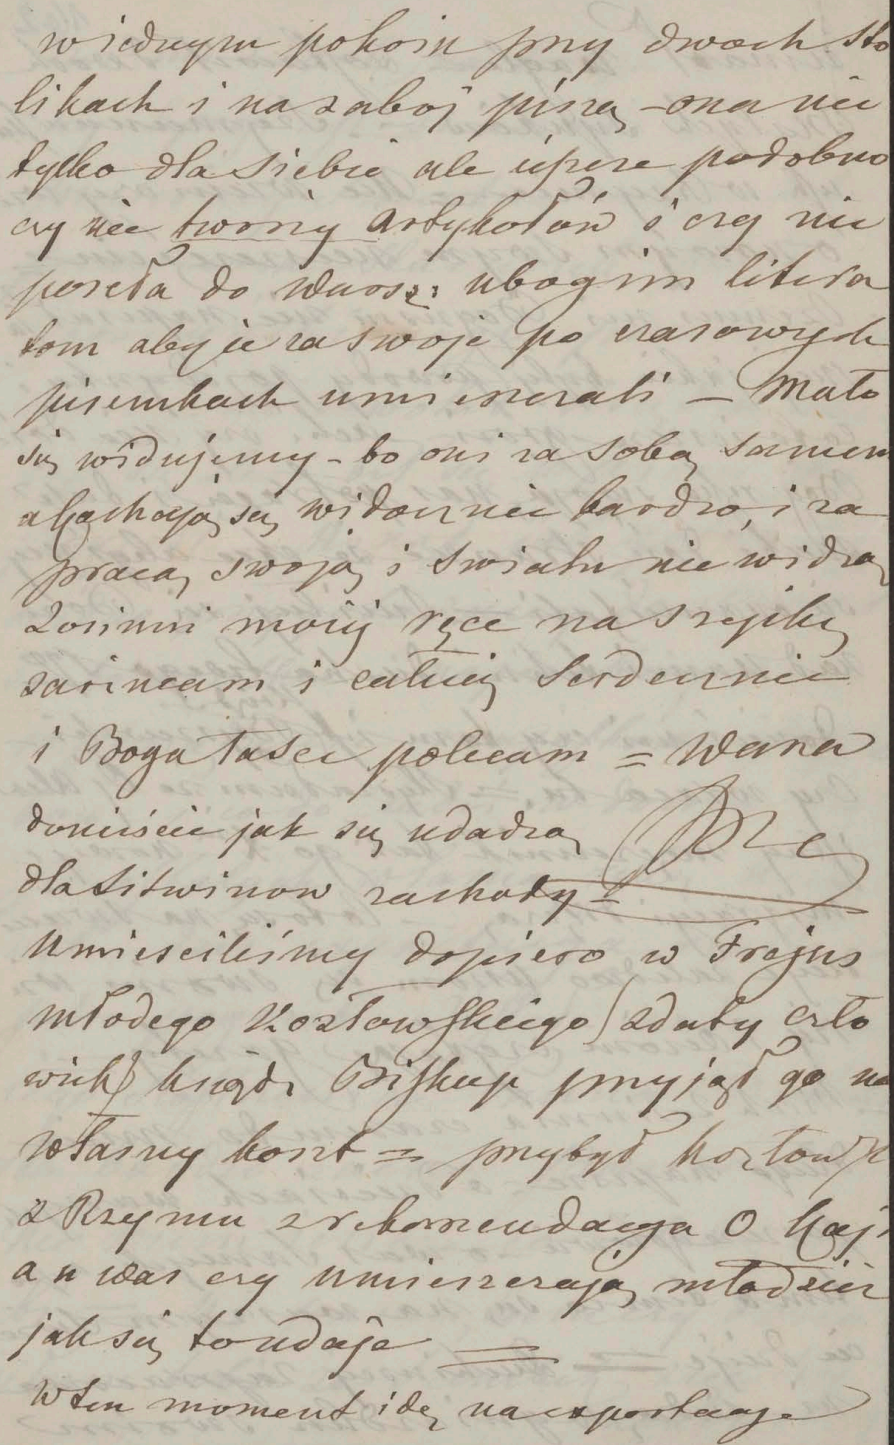 w iednym pokoiu przy dwóch sto
likach i na zaboj piszą – ona nie
tylko dla siebie ale ieszcze podobno
czy nie tworzy artykołów i czy nie
poseła do warsz: ubogim litera
tom aby ie za swoje po czasowych
pisemkach umieszczali – Mało
się widujemy – bo oni za sobą samem
a kochają się widocznie bardzo, i za
pracą swoją i swiatu nie widzą
Zosinni mojéj ręce na szejkę
zarzucam i całuię serdecznie
i Boga łasce polecam = Wanna
doniescie jak się udadzą
dla Litwinow zachody =
Umiesciliśmy dopiero w Frejus
młodego Kozłowskiego / zdatny czło
wiek / ksiądz Biskup przyjął go na
własny koszt = przybył Kozłowsk
z Rzymu z rekomendacyą O Kajs
a u was czy umieszczają młodzież
jak się to udaje =
w ten moment idę na exportacye